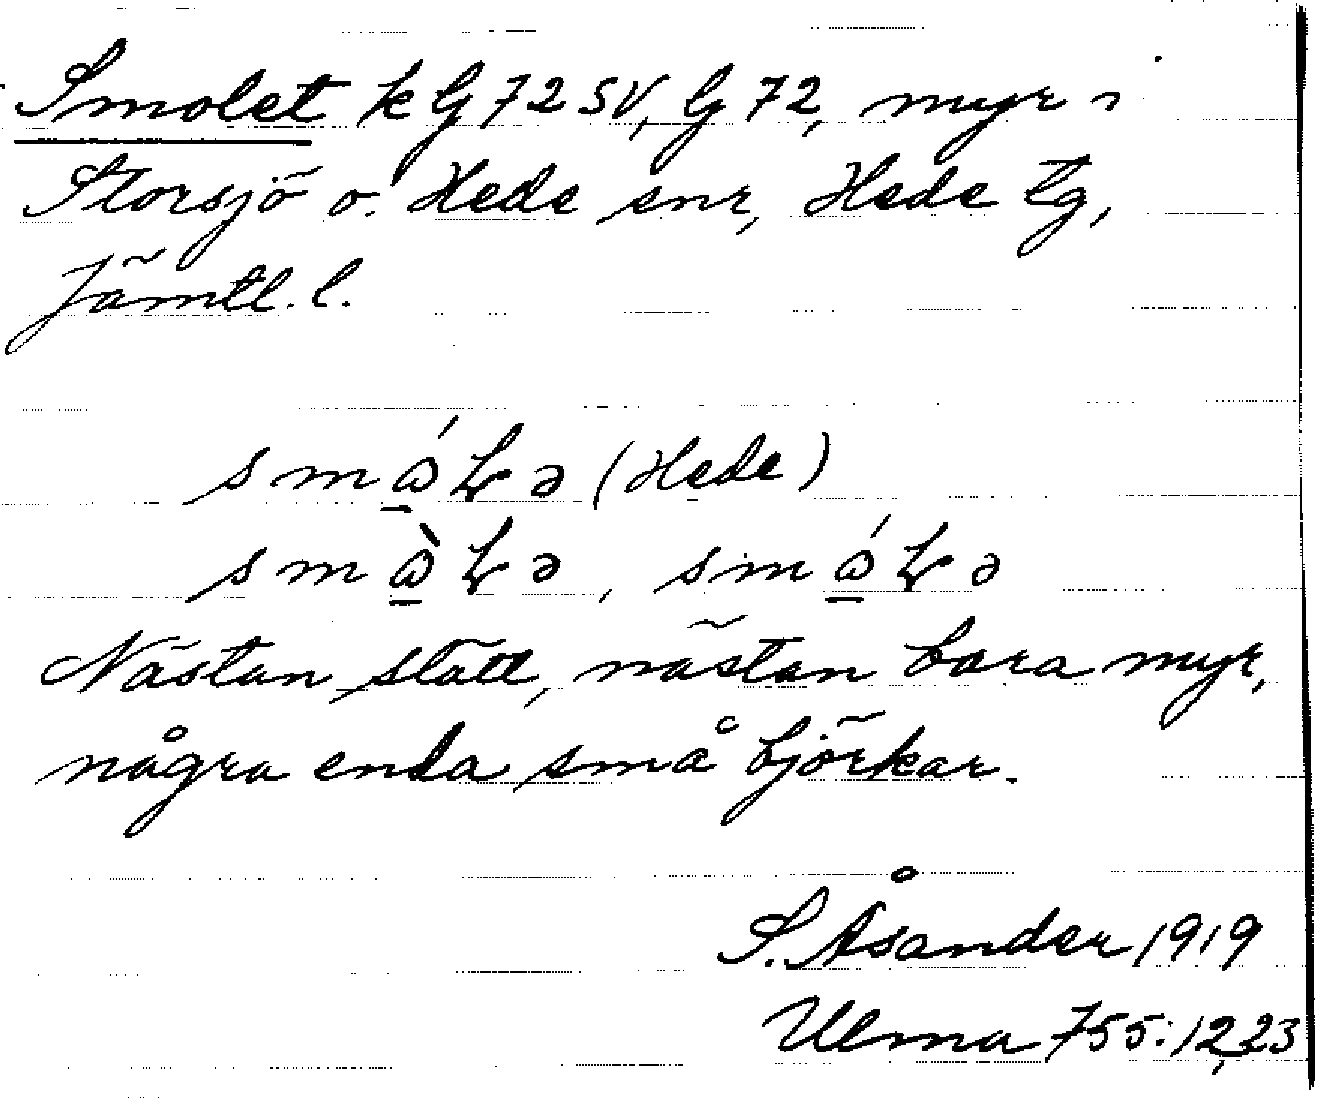 Smolet k G 72 SV, G 72, myr i
Storsjö o. Hede snr, Hede tg,
Jämtl. l.
smɷ̱́ꞭƏ (Hede)
smɷ̱̀Ɬə, smɷ̱́Ɬə
Nästan slätt, nästan bara myr,
några enda små björkar.
S. Åsander 1919
Ulma 755:12,23